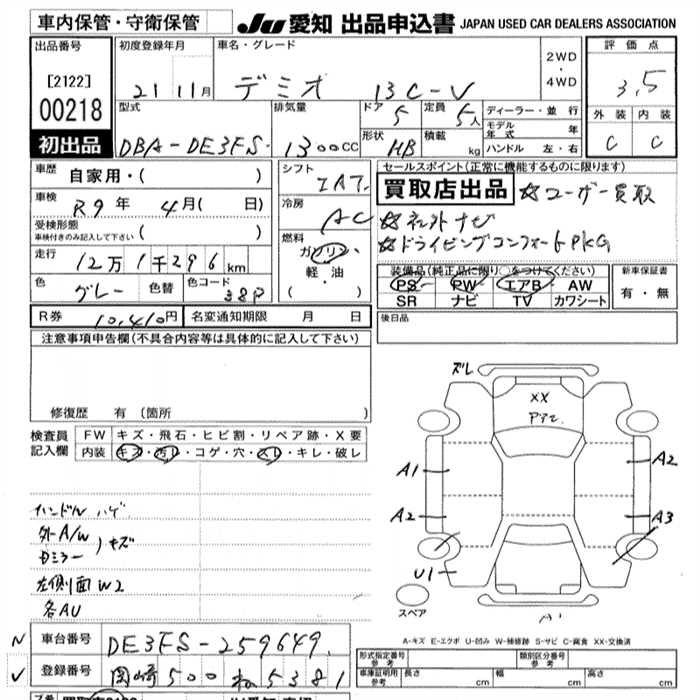 車内保管・守衛保管
JU 愛知 出品申込書 JAPAN USED CAR DEALERS ASSOCIATION
出品番号
[2122]
00218
初出品
初度登録年月
21 11月
車名・グレード
デミオ 13C-V
2WD
・
4WD
評価点
3.5
外装 内装
C C
型式
DBA-DE3FS
排気量
1300CC
ドア
5
定員
5人
形状
HB
積載
kg
ディーラー・並行
モデル年式 年
ハンドル 左・右
車歴 自家用・( )
車検 R9年 4月( 日)
受検形態
車検付きのみ記入して下さい ( )
走行
12万1千296km
色 グレー 色替 色コード 38P
R券 10,410円 名変通知期限 月 日
シフト
IAT
冷房
AC
燃料
ガソリン・
軽油
( ・ )
セールスポイント(正常に機能するものに限ります)
買取店出品 ☆ユーザー買取
☆ネットナビ
☆ドライビングコンフォートPKG
装備品(純正品に限り○をつけてください)
PS PW エアB AW
SR ナビ TV カワシート
新車保証書
有・無
後日品
注意事項申告欄(不具合内容等は具体的に記入して下さい)
修復歴 有(箇所 )
検査員記入欄
FW キズ・飛石・ヒビ割・リペア跡・X要
内装 キズ・汚レ・コゲ・穴・スレ・キレ・破レ
ハンドル ハゲ
外A/W
ミラー )キズ
左側面 W2
各AU
ズレ
XX
A1
A2
A2
A3
U1
スペア
A'
A-キズ E-エクボ U-凹み W-補修跡 S-サビ C-腐食 XX-交換済
車台番号 DE3FS-259649
登録番号 岡崎500 ね5381
形式指定番号
参考
類別区分番号
参考
車庫証明用
参考
長さ cm 幅 cm 高さ cm